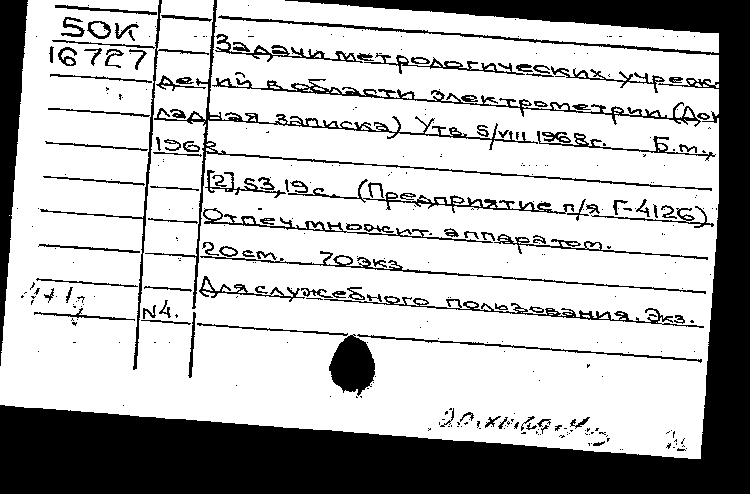 50К
16727
Задачи метрологических учреж-
дений в области электрометрии. (Док-
ладная записка) Утв. 5/VIII 1968г. Б.м.,
1968.
[2], 53, 19 с. (Предприятие п/я Г-4126).
Отпеч. множит. аппаратом.
20см. 70экз.
Для служебного пользования. Экз.
N4.
4+1д
20.XII.68